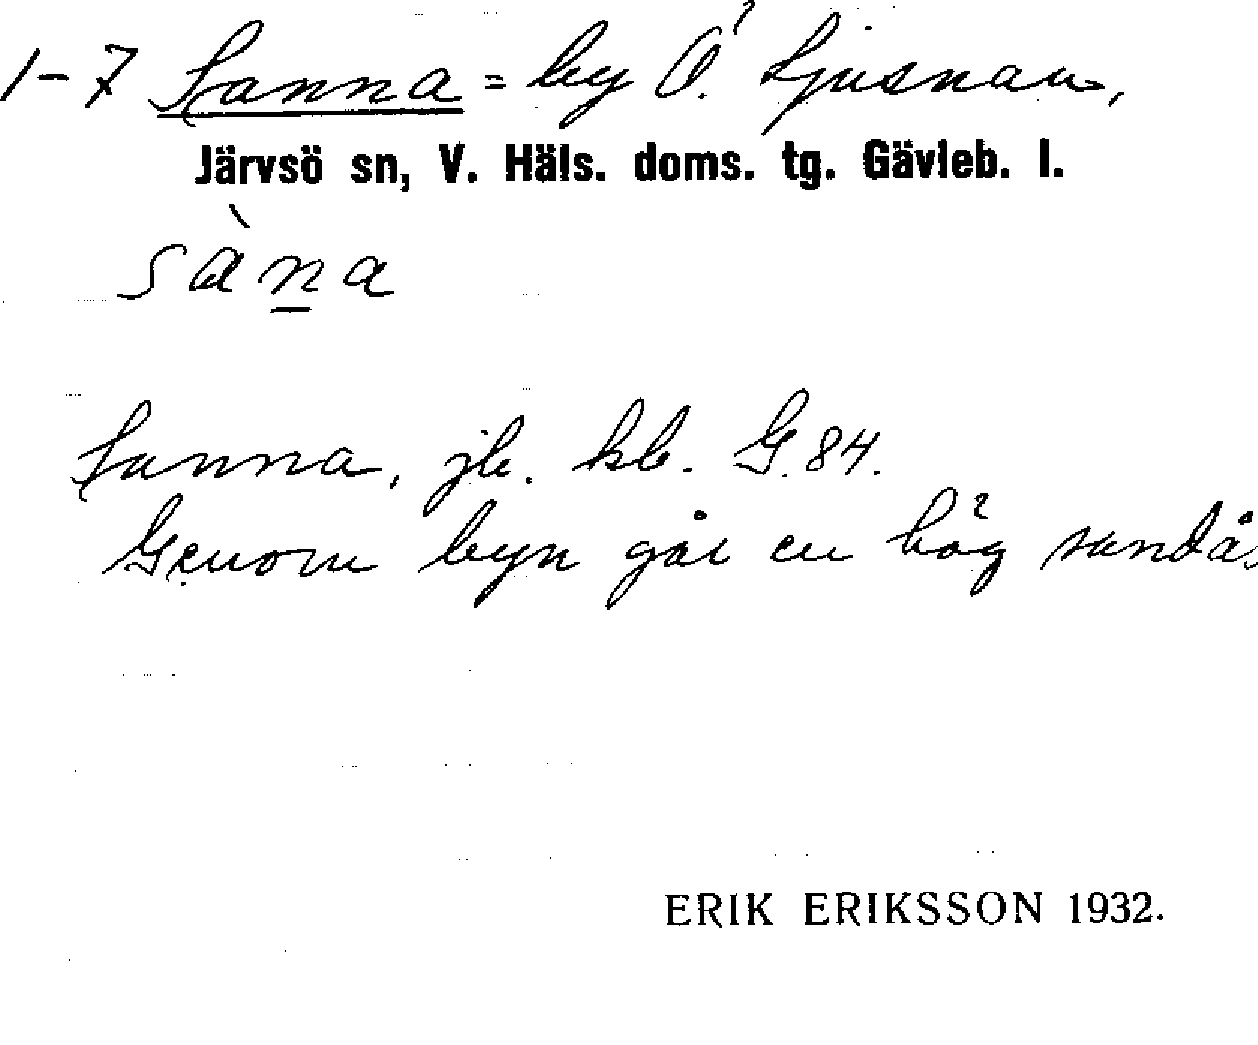 1-7 Sanna = by Ö. Ljusnan,
Järvsö sn, V. Häls. doms. tg. Gävleb. l.
sàṉa
Sanna, jb. kb. G. 84.
Genom byn går en hög sandås
ERIK ERIKSSON 1932.